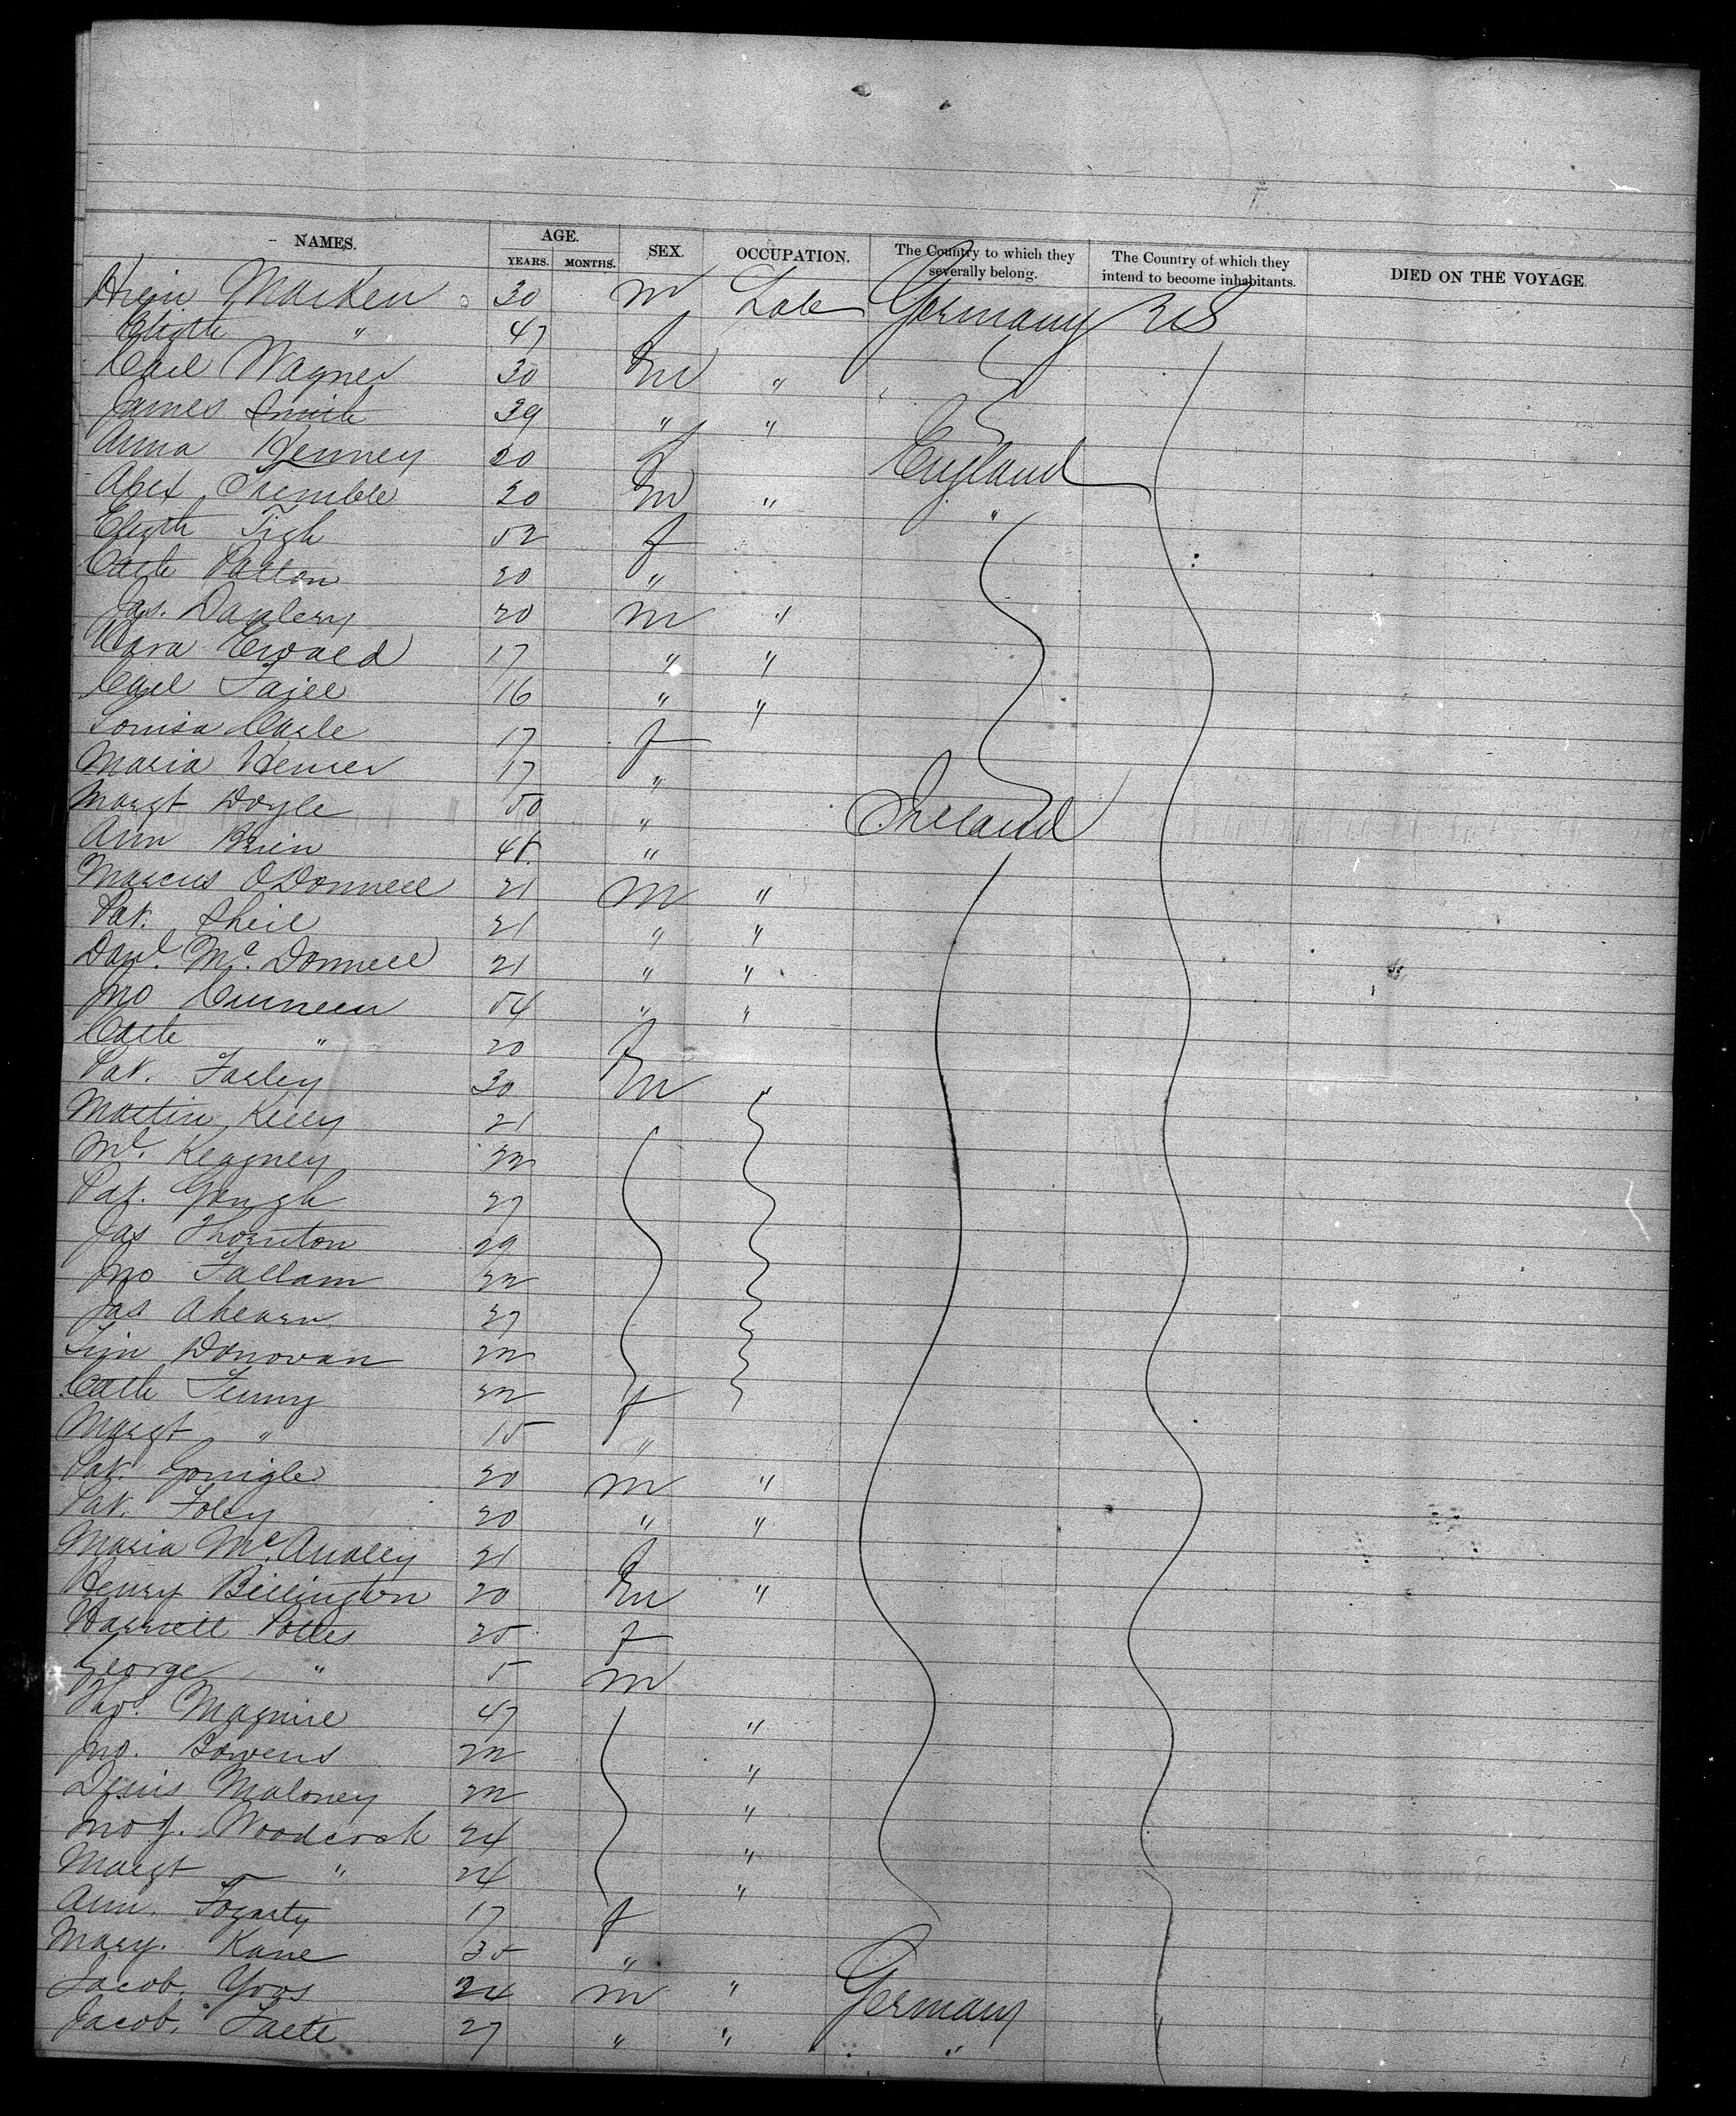 NAMES. AGE. SEX. OCCUPATION. The Country to which they severally belong. The Country of which they intend to become inhabitants. DIED ON THE VOYAGE.
YEARS. MONTHS.
Marken 30 m Lab Germany US
Elizth " 47 f
Carl Wagner 30 m "
James Smith 39 " "
Anna Kenney 20 f England
Alex Tremble 20 m " "
Elizth Tigh 52 f
Cath Patton 20 "
Jas. 20 m "
Clara Ewald 17 " "
Carl 16 " "
Louisa Carle 17 f
Maria 17 "
Margt Doyle 50 " Ireland
Ann Brien 48 "
Marcus O'Donnell 21 m "
Pat. Sheil 21 " "
Danl. Mc. Donnell 21 " "
Jno Cunneen 54 " "
Cath " 20 f
Pat. Farley 30 m "
Martin Kelly 21
Ml. Keagney 22
Pat. Gough 27
Jas Thornton 29
Jno Fallam 22
Jas Ahearn 27
Tim Donovan 22
Cath Fenny 22 f
Margt " 15 "
Pat. Gonigle 20 m "
Pat. Foley 20 " "
Maria McAnally 21 f
Henry Billington 20 m "
Harriett Potts 25 f
George " 5 m
Thos. Maguire 47 "
Jno. Bowens 22 "
Denis Maloney 22 "
Jno J. Woodcock 24 "
Margt " 24 "
Ann. Fogarty 17 f
Mary. Kane 35 "
Jacob. Yoos 24 m " Germany
Jacob. 27 " " "